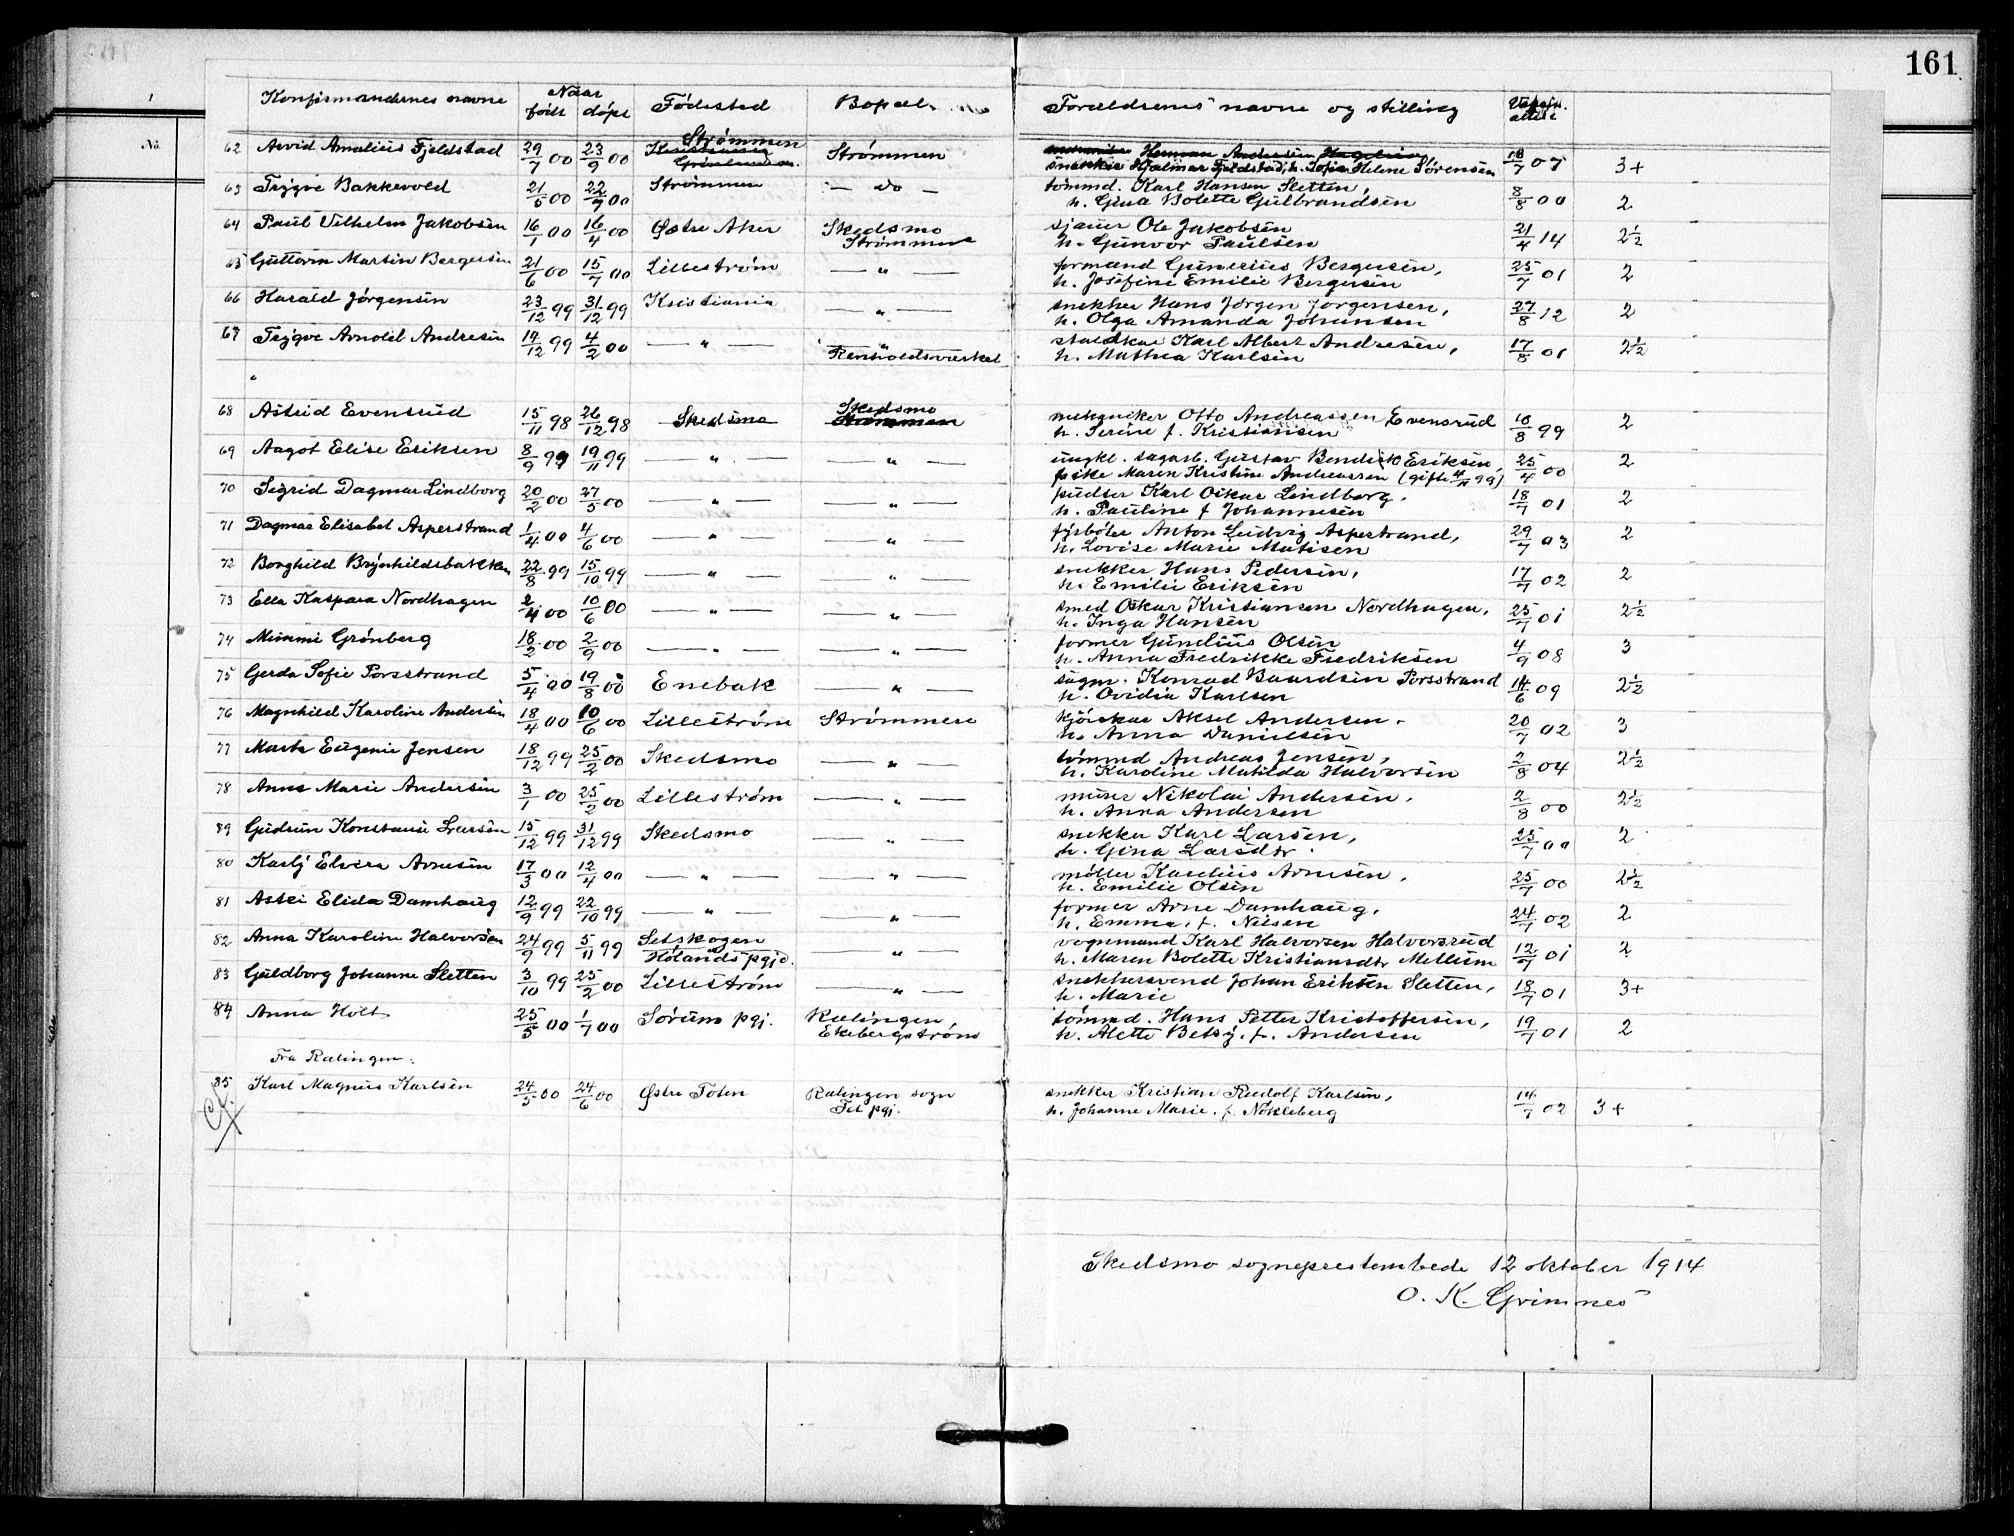 161
1
No.
Konfirmandernes navne Naar født døpt Fødested Bopæl Foræeldrenes navne og stilling Vaksin. attest
62 Arvid Amalius Fjeldstad 29/7 00 23/9 00 Strømmen Strømmen snekker Hjalmar Fjeldstad, h. Sofie Helene Sørensen 18/7 07 3+
63 Trygve Bakkevold 21/5 00 22/7 00 Strømmen — do — tømmd. Karl Hansen Sletten,
h. Gina Bolette Gulbrandsen 8/8 00 2
64 Paul Vilhelm Jakobsen 16/1 00 16/4 00 Østre Aker Skedsmo Strømmen sjauer Ole Jakobsen
h. Gunvor Paulsen 21/4 14 2½
65 Guttorm Martin Bergersen 21/6 00 15/7 00 Lillestrøm — " — formand Gunerius Bergersen,
h. Josefine Emilie Bergersen 25/7 01 2
66 Harald Jørgensen 23/12 99 31/12 99 Kristiania — " — snekker Hans Jørgen Jørgensen,
h. Olga Amanda Johansen 27/8 12 2
67 Trygve Arnold Andresen 14/12 99 4/2 00 — " — " Renholdsverket staldkar Karl Albert Andresen,
h. Mathea Karlsen 17/8 01 2½
68 Astrid Evensrud 15/11 98 26/12 98 Skedsmo Skedsmo Strømmen mekaniker Otto Andreassen Evensrud
h. Serine f. Kristiansen 10/8 99 2
69 Aagot Elise Eriksen 8/9 99 19/11 99 — " — — " — ungkl. sagarb. Gustav Bendik Eriksen,
pike Maren Kristine Andreassen (gifte 4/11 99) 25/4 00 2
70 Sigrid Dagmar Lindborg 20/2 00 27/5 00 — " — — " — pudser Karl Oskar Lindborg,
h. Pauline f. Johannesen 18/7 01 2
71 Dagmar Elisabet Asperstrand 1/4 00 4/6 00 — " — — " — fyrbøter Anton Ludvig Asperstrand,
h. Lovise Marie Matisen 29/7 03 2
72 Borghild Brynhildsbakken 22/8 99 15/10 99 — " — — " — snekker Hans Pedersen,
h. Emilie Eriksen 17/7 02 2
73 Ella Kaspara Nordhagen 2/4 00 10/6 00 — " — — " — smed Oskar Kristiansen Nordhagen,
h. Inga Hansen 25/7 01 2½
74 Mimmi Grønberg 18/2 00 2/9 00 — " — — " — former Gunelius Olsen
h. Anna Fredrikke Fredriksen 4/9 08 3
75 Gerda Sofie Porsstrand 5/4 00 19/8 00 Enebak — " — sagm. Konrad Baardsen Porsstrand
h. Ovidia Karlsen 14/6 09 2½
76 Magnhild Karoline Andersen 18/4 00 10/6 00 Lillestrøm Strømmen kjørekar Aksel Andersen.
h. Anna Danielsen 20/7 02 3
77 Marta Eugenie Jensen 18/12 99 25/2 00 Skedsmo — " — tømmd Andreas Jensen,
h. Karoline Matilda Halvorsen 2/8 04 2½
78 Anna Marie Andersen 3/1 00 25/2 00 Lillestrøm — " — murer Nikolai Andersen.
h. Anna Andersen 2/8 00 2½
89 Gudrun Konstanse Larsen 15/12 99 31/12 99 Skedsmo — " — snekker Karl Larsen,
h. Gina Larsdtr. 25/7 00 2
80 Kasly Elvira Arnesen 17/3 00 12/4 00 — " — — " — møller Karelius Arnesen,
h. Emilie Olsen 25/7 00 2½
81 Astri Elida Damhaug 12/9 99 22/10 99 — " — — " — former Arne Damhaug,
h. Emma, f. Nilsen 24/7 02 2
82 Anna Karoline Halvorsen 24/9 99 5/11 99 Setskogen Hølands pgjd. — " — vognmand Karl Halvorsen Halvorsrud
h. Maren Bolette Kristiansdtr Mellum 12/7 01 2
83 Guldborg Johanne Sletten 3/10 99 25/2 00 Lillestrøm — " — snekkersvend Johan Eriksen Sletten,
h. Marie 18/7 01 3+
84 Anna Holt 25/5 00 1/7 00 Sørum pgj. Rælingen Ekebergstrøm tømmd. Hans Petter Kristoffersen,
h. Alette Betsy, f. Andersen 19/7 01 2
Fra Rælingen:
85 Karl Magnus Karlsen 24/5 00 24/6 00 Østre Toten Rælingen sogn Fet pgj. snekker Kristian Rudolf Karlsen,
h. Johanne Marie, f. Nøkleberg 14/7 02 3+
Skedsmo sogneprestembede 12 oktober 1914
O. K. Grimnes